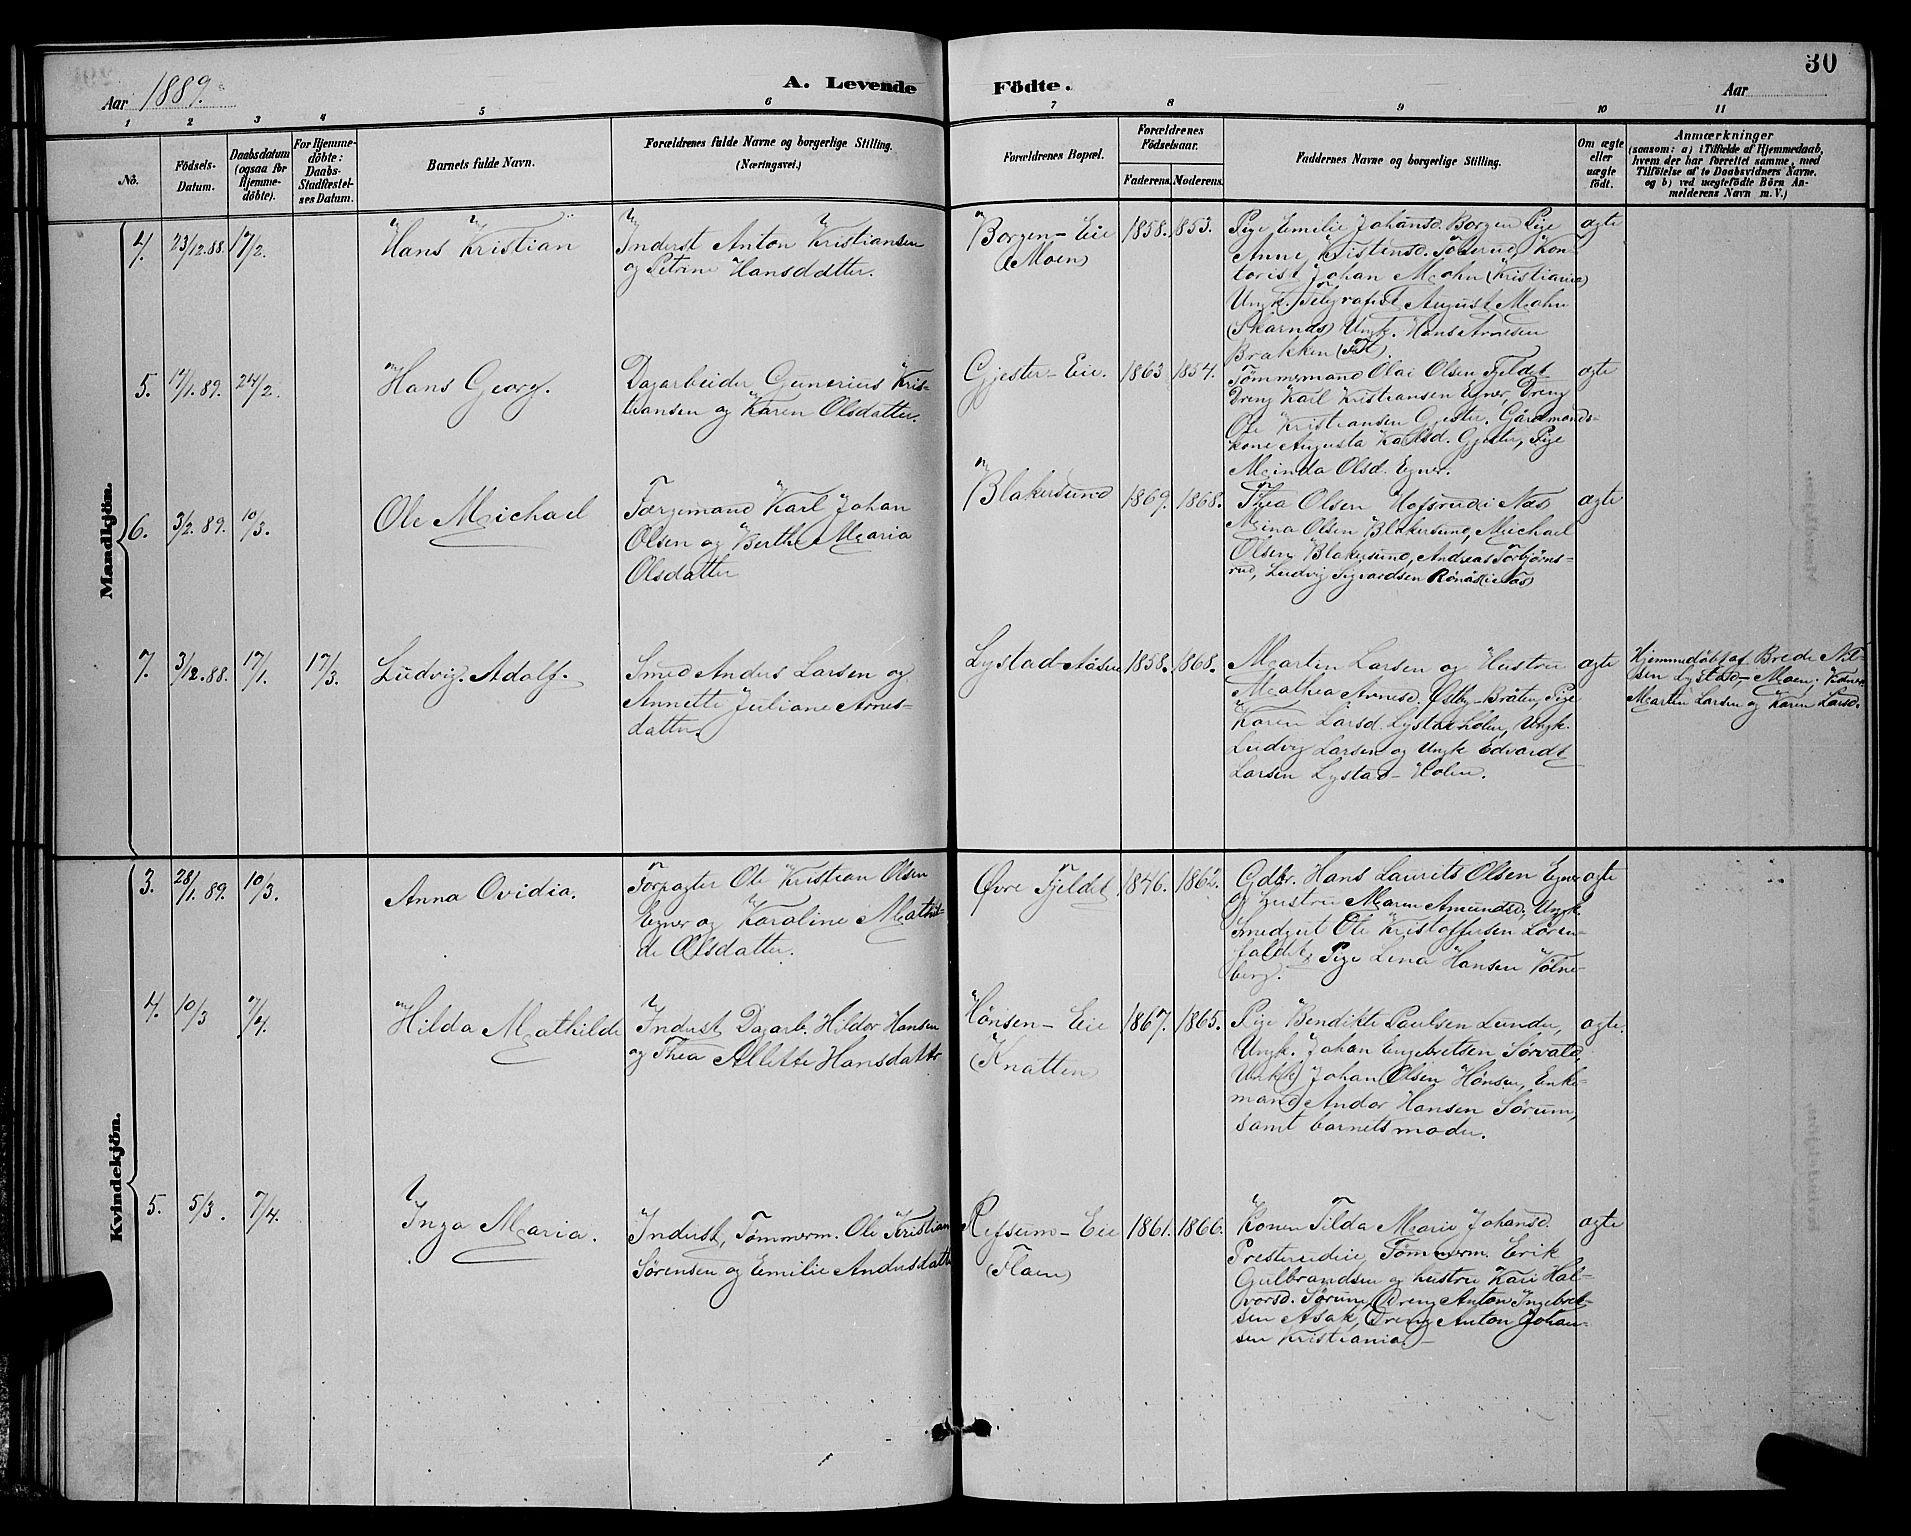 30
Aar 1889.
A. Levende Födte.
Aar
1 2 3 4 5 6 7 8 9 10 11
No.
Födsels-
Datum.
Daabsdatum
(ogsaa for
Hjemme-
döbte).
For Hjemme-
döbte:
Daabs-
Stadfæstel-
ses Datum.
Barnets fulde Navn.
Forældrenes fulde Navne og borgerlige Stilling.
(Næringsvei.)
Forældrenes Bopæl.
Forældrenes
Födselsaar.
Faderens. Moderens.
Faddernes Navne og borgerlige Stilling.
Om ægte
eller
uægte
födt.
Anmærkninger
(saasom: a) i Tilfælde af Hjemmedaab,
hvem der har forrettet samme, med
Tilföielse af to Daabsvidners Navne.
og b) ved uægtefödte Börn An-
melderens Navn m.V.)
Mandkjön.
4. 23/12.88. 17/2. Hans Kristian
Inderst Anton Kristiansen
og Petrine Hansdatter.
Borgen-Eie
(Moen)
1858. 1853.
Pige Emilie Johansd. Borgen Pige
Anne Kristensd. Sölserud, Kon-
torist Johan Mohn (Kristiania)
Ungk. Telegrafist August Mohn
(Skarnæs) Ungk. Hans Arnesen
Brakken (Fet).
ægte
5. 17/1.89. 24/2. Hans Georg.
Dagarbeider Gunerius Kris-
tiansen og Karen Olsdatter.
Gjester-Eie.
1863 1854.
Tömmermand Olai Olsen Fjeldet
Dreng Karl Kristiansen Egner, Dreng
Ole Kristiansen Gjester. Gårdmands-
kone Augusta Karlsd. Gjester, Pige
Minda Olsd. Egner.
ægte
6. 3/2.89. 10/3. Ole Michael
Færgemand Karl Johan
Olsen og Berthe Maria
Olsdatter
Blakersund
1869. 1868.
Thea Olsen Hofsrud i Næs
Mina Olsen Blakersund, Michael
Olsen Blakersund, Andreas Torbjörns-
rud, Ludvig Sigvardsen Rönås (i Næs)
ægte
7. 3/12.88. 17/1. 17/3. Ludvig Adolf.
Smed Anders Larsen og
Annette Juliane Arnes-
datter.
Lystad-Aåsen
1858. 1868.
Martin Larsen og Hustru
Mathea Arnesd. Østby-Bråten, Pige
Karen Larsd. Lystad-Holen, Ungk.
Ludvig Larsen og Ungk Edvardt
Larsen Lystad-Holen.
ægte
Hjemmedöbt af Brede Nil-
sen Lystad-Moen; Vidner
Martin Larsen og Karen Larsd.
Kvindekjön.
3. 28/1.89. 10/3. Anna Ovidia.
Forpagter Ole Kristian Olsen
Egner og Karoline Mathil-
de Olsdatter.
Øvre Fjeldet
1846. 1862.
Gdbr. Hans Laurits Olsen Egner
og hustru Maren Amundsd. Ungk.
Smedgut Ole Kristoffersen Lören-
faldet, Pige Lina Hansen Völne-
berg.
ægte
4. 10/3 7/4. Hilda Mathilde
Inderst, Dagarb. Hildor Hansen
og Thea Allette Hansdatter
Hönsen-Eie
(Knatten)
1867. 1865.
Pige Bendikte Paulsen Lunder,
Ungk. Johan Engebretsen Sörvald,
Ungk. Johan Olsen Hönsen, Enke-
mand Andor Hansen Sörum,
samt barnets moder.
ægte.
5. 5/3. 7/4. Inga Maria.
Inderst, Tömmerm. Ole Kristian
Sörensen og Emilie Andersdatter
Refsum-Eie
(Flaen)
1861. 1866.
Konen Tilda Marie Johansd.
Presterudeie, Tömmerm. Erik
Gulbrandsen og hustru Kari Hal-
vorsd. Sörum, Dreng Anton Ingebret-
sen Asak, Dreng Anton Johan-
sen Kristiania.
ægte